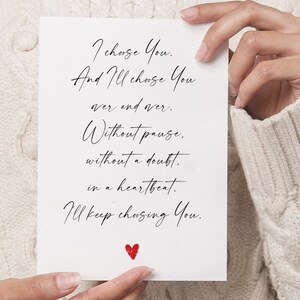 I choose You.
And I'll choose You
over and over.
Without pause,
without a doubt,
in a heartbeat,
I'll keep choosing You.